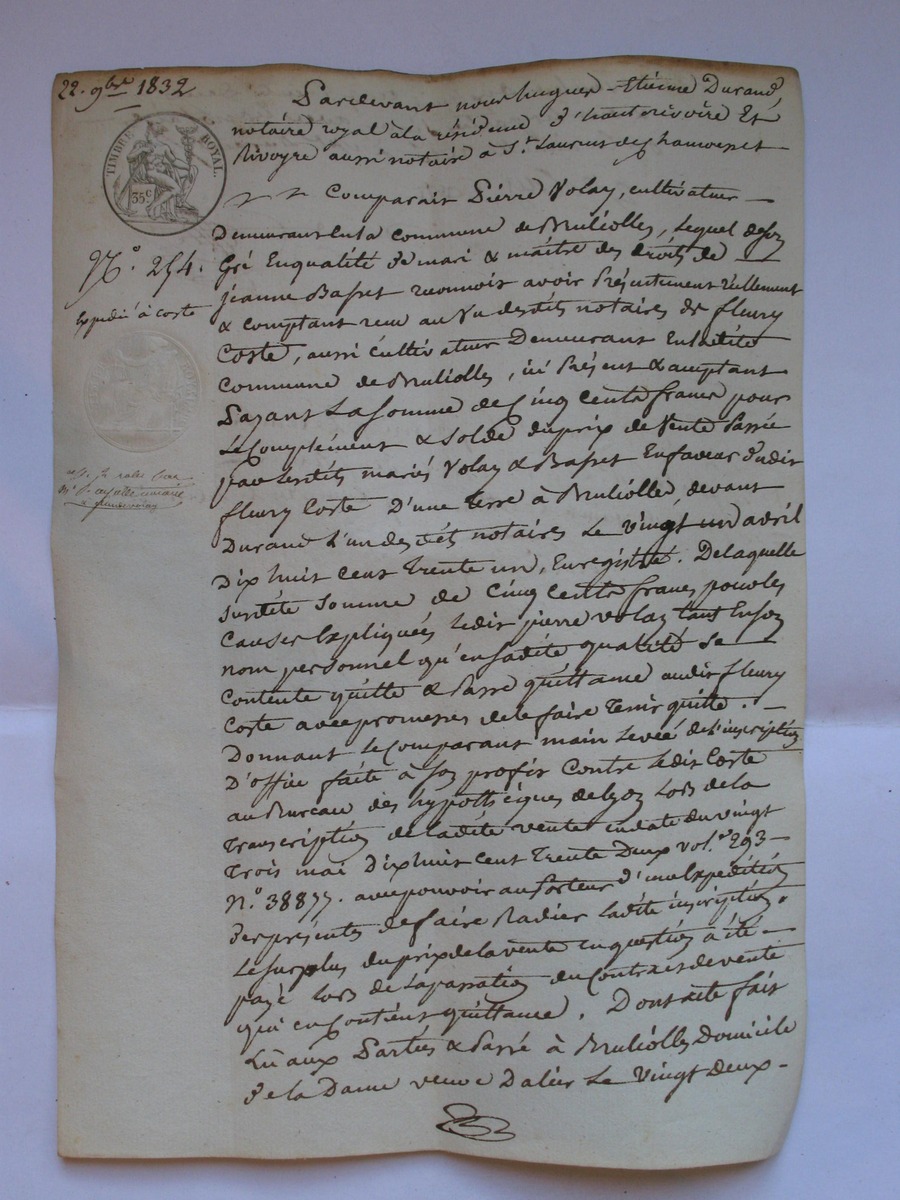 22. 9bre 1832
Pardevant nous hugues-Etienne Durand
notaire royal à la résidence d'hauterivoire Et
Rivoyre aussi notaire à St. Laurent de Chamousset
TIMBRE ROYAL.
35c
Comparait Pierre Volay, cultivateur
Demeurant en la commune de Brulliolles, lequel de son
N.o 254.
Gré Enqualité de mari & maitre des droits de
jeanne Basset reconnoit avoir Présentement réellement
Expédié à coste
& comptant recu au vu desdits notaires de fleury
Coste, aussi cultivateur Demeurant En ladite
commune de Brulliolles, ici Présent & acceptant
Payant La somme de Cinq cents francs pour
Le Complément & Solde du prix de Vente Passée
par lesdits mariés Volay & Basset En faveur dudit
fleury Coste D'une terre à Brulliolle, devant
Durand L'un desdits notaires Le vingt un avril
Dix huit cent trente un, Enregistré. De laquelle
susdite somme de Cinq cents francs pour les
causes Expliquées ledit pierre volay tant En son
nom personnel qu'en sadite qualité se
contente quitte & Passe quittance audit fleury
Coste avec promesses de le faire tenir quitte.
Donnant Le Comparant main Levée de l'inscription
D'office faite à son profit contre ledit Coste
au Bureau des hypothèques de lyon Lors de la
transcription de ladite vente en date du vingt
trois mai Dix huit cent trente Deux vol.e 293
N.o 38877. avec pouvoir au Porteur d'une Expédition
des présentes de faire Radier Ladite inscription.
Le surplus du prix de la vente en question a été
payé Lors de La passation du Contrat de vente
qui en Contient quittance. Dont acte fait
Lu aux Parties & Passé à Brulliolles Domicile
de la Dame veuve Dalier Le vingt deux